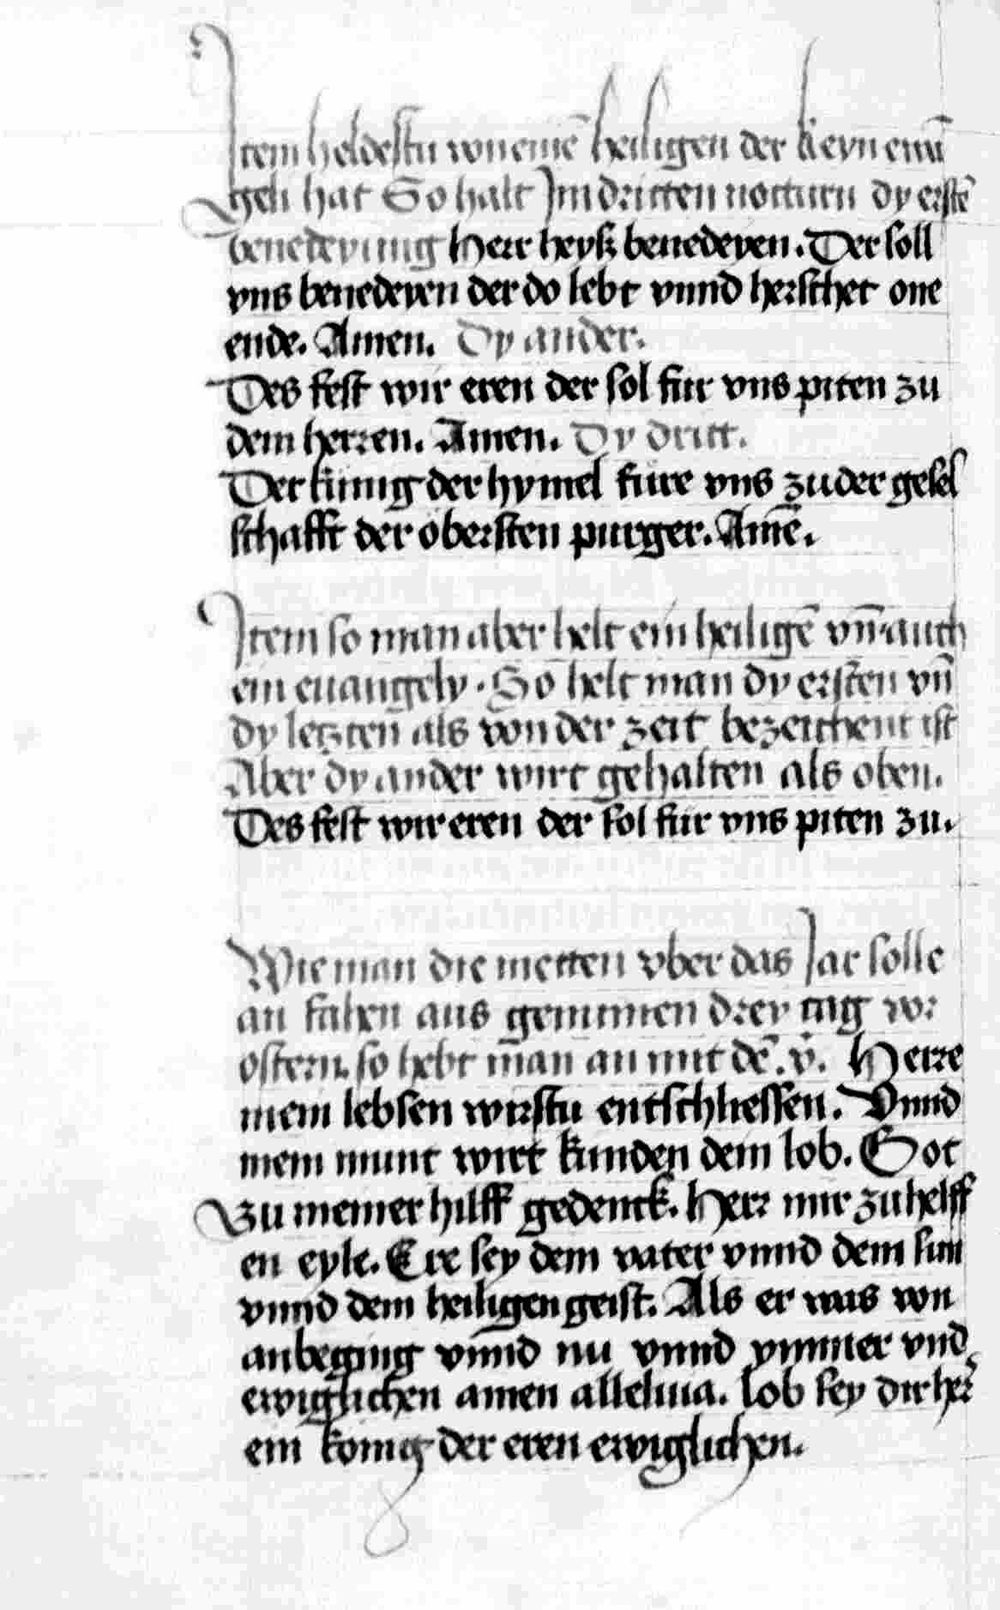 Item heldestu von eine͂ heiligen der keyn ewa͂
geli hat So halt Im dritten nocturn dy erste͂
benedeyung Herr heyß benedeyen. Der soll
vns benedeyen der do lebt vnnd herschet one
ende. Amen. Dy ander.
Des fest wir eren der sol fur vns piten zu
dem herren. Amen. Dy dritt.
Der kunig der hymel fure vns zu der gesel
schafft der obersten purger. Ame͂.
Item so man aber helt ein heilige͂ vn͂ auch
ein euangely. So helt man dy ersten vn͂
dy letzten als von der zeit bezeichent ist
Aber dy ander wirt gehalten als oben.
Des fest wir eren der sol fur vns piten zu.
Wie man die metten vber das Jar solle
an fahen aus genumen drey tag vor
ostern. so hebt man an mit de͂. v̄. Herre
mein lebsen wirstu entschliessen. Vnnd
mein munt wirt kunden dein lob. Got
zu meiner hilff gedenck. Herr mir zu helff
en eyle. Ere sey dem vater vnnd dem sun
vnnd dem heiligen geist. Als er was von
anbeging vnnd nu vnnd ymmer vnd
ewiglichen amen alleluia. lob sey dir her
ein konig der eren ewiglichen.